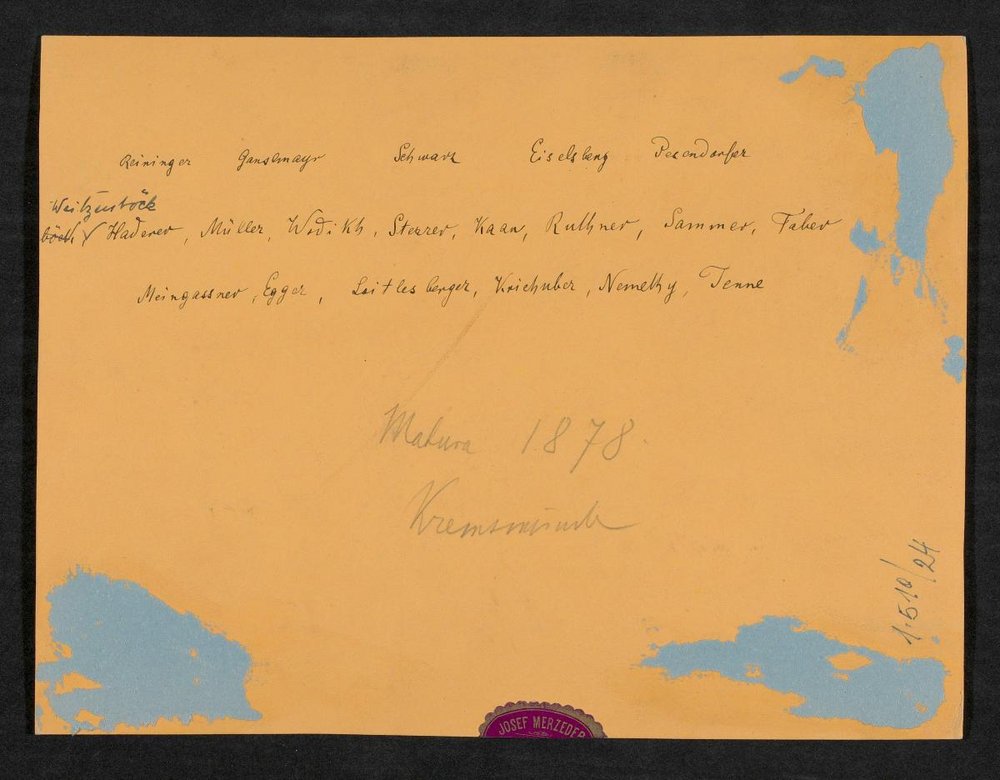 Reininger Ganslmayr Schwarz Eiselsberg Pesendorfer
Weitzenböck
böck, Haderer, Müller, Wodikh, Sterrer, Kaan, Ruthner, Sammer, Faber
Meingassner, Egger, Loitlesberger, Krichuber, Nemethy, Tenne
Matura 1878.
Kremsmünst
1.510/24
JOSEF MERZEDER